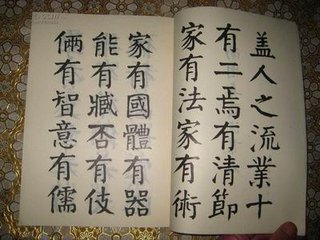 盖人之流業十
有二焉有清節
家有法家有術
家有國體有器
能有臧否有伎
倆有智意有儒